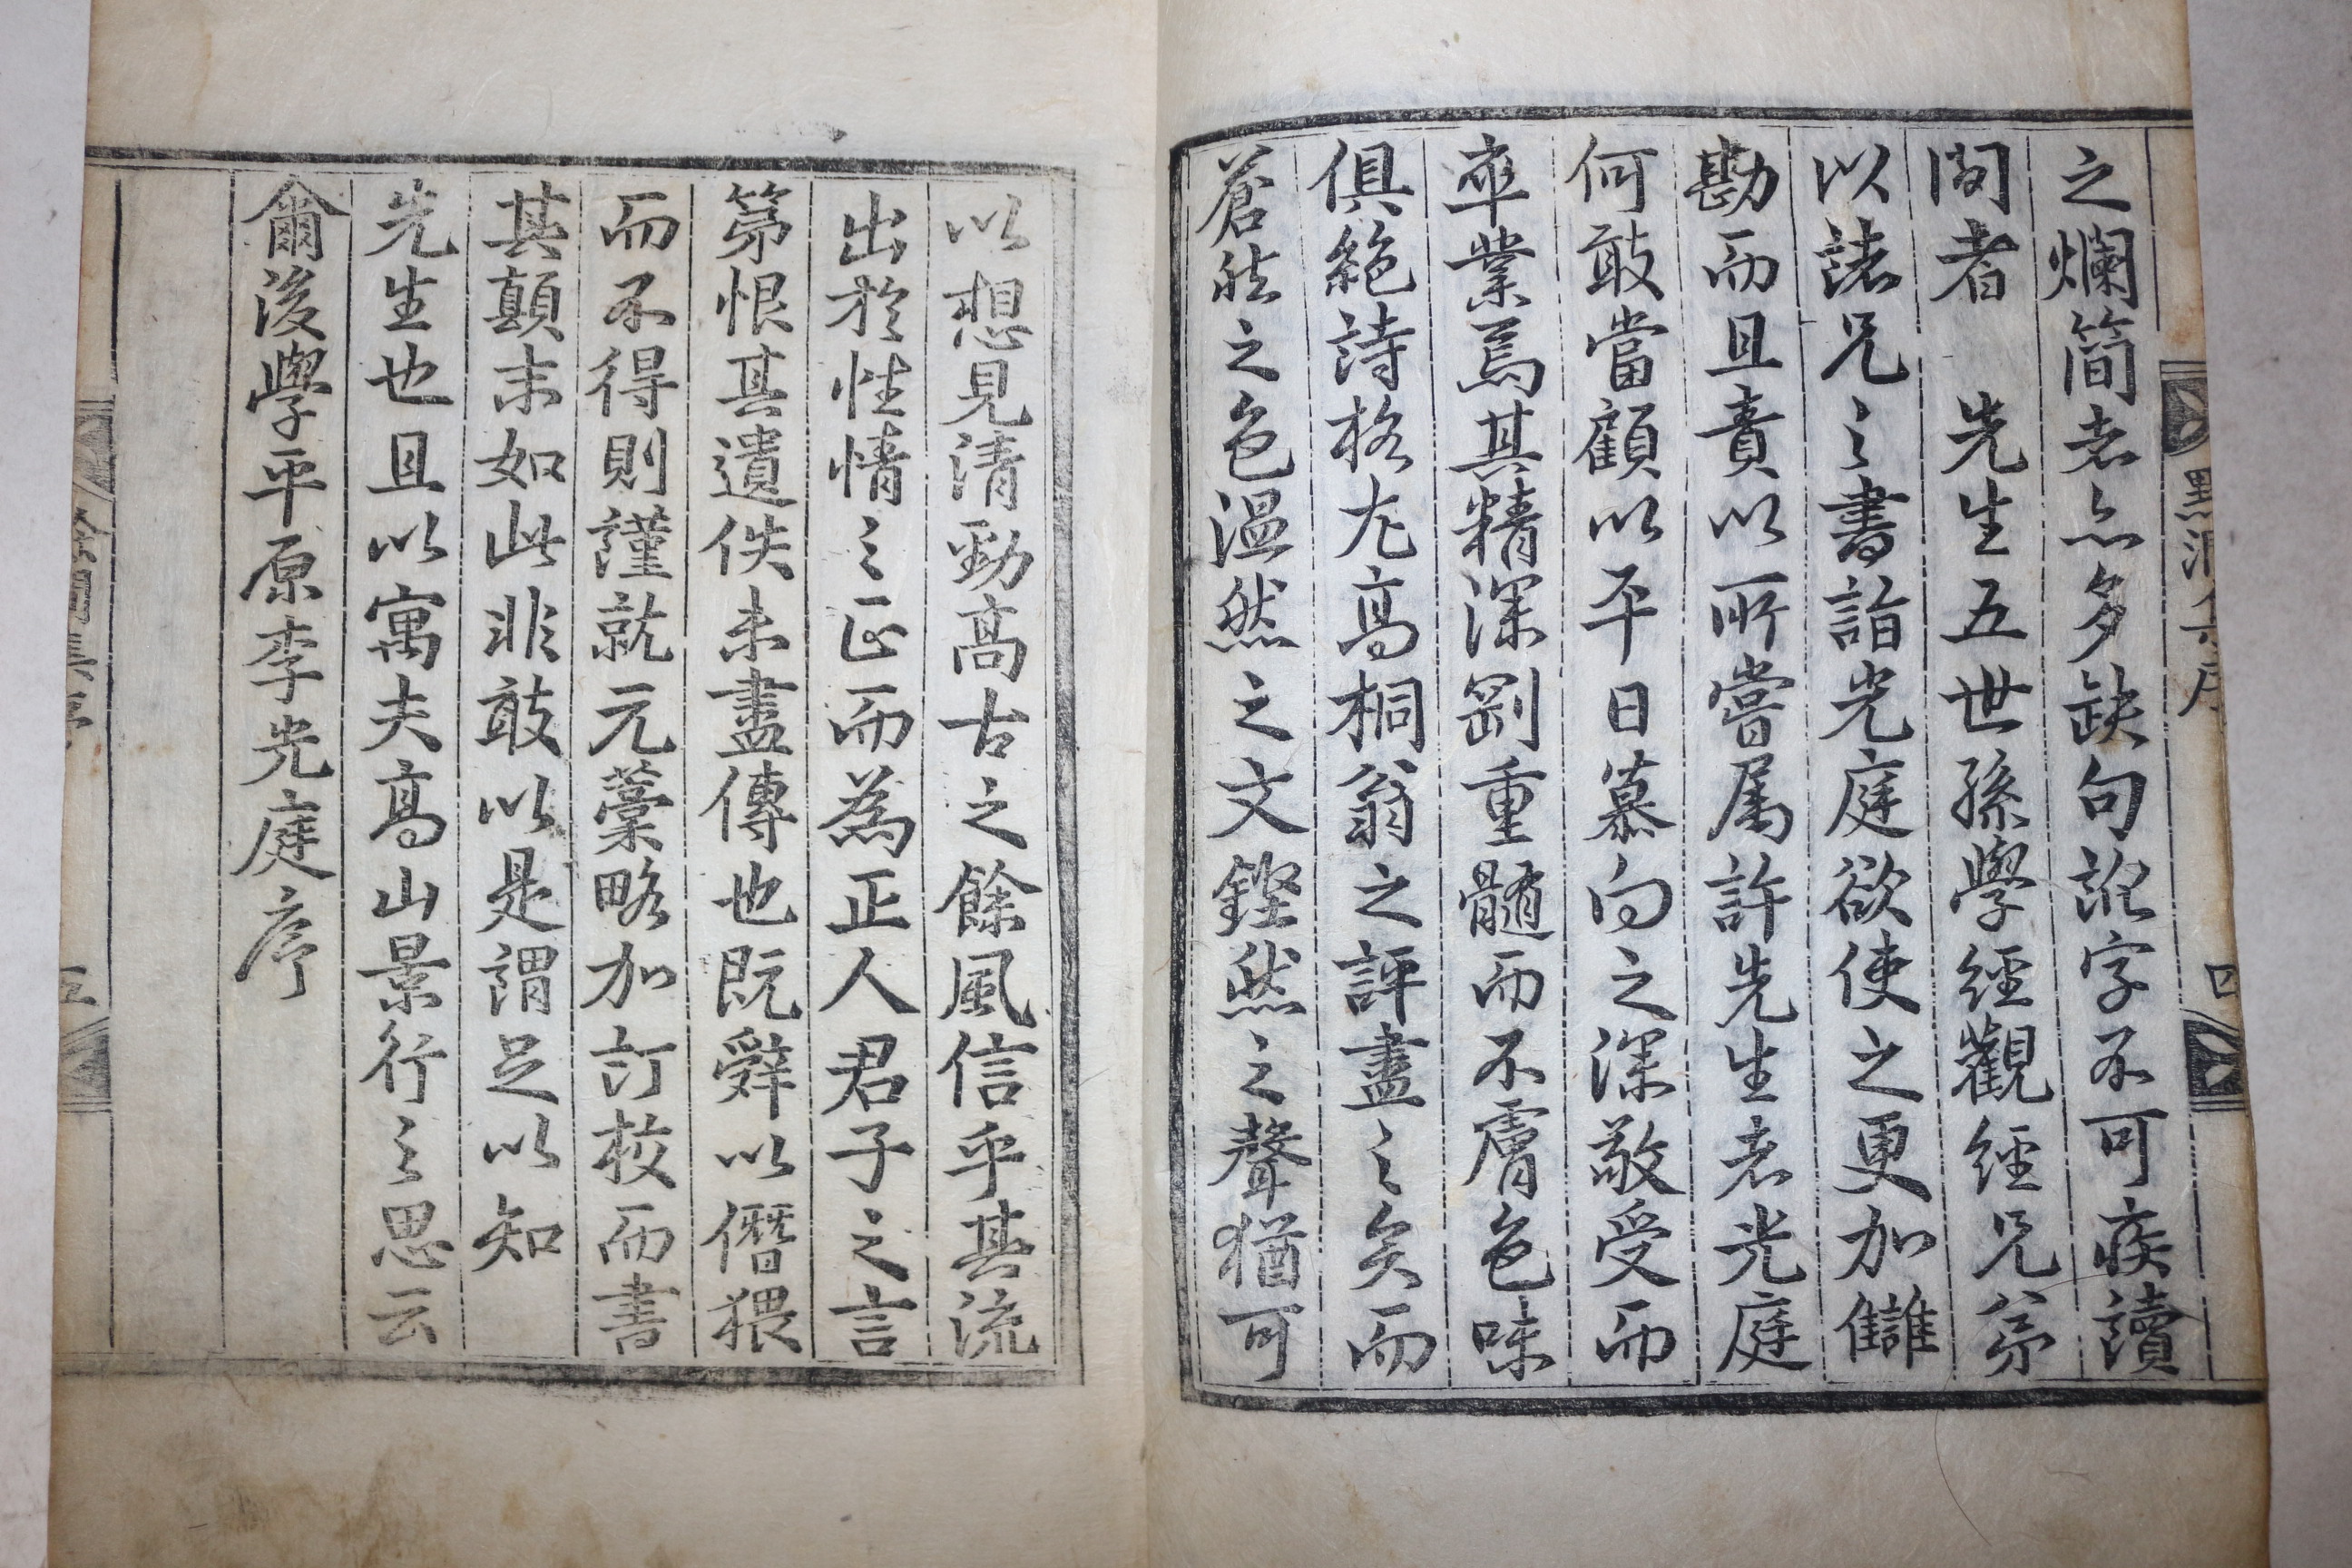 之爛簡者亦多缺句訛字不可疾讀
間者　先生五世孫學經觀經兄弟
以諸兄之書詣光庭欲使之更加讎
勘而且責以所嘗屬許先生者光庭
何敢當顧以平日慕向之深敬受而
卒業焉其精深劉重髓而不膚色味
俱絶詩格尤高桐翁之評盡之矣而
蒼然之色溫然之文鏗然之聲猶可
以想見清勁高古之餘風信乎其流
出於性情之正而為正人君子之言
第恨其遺佚未盡傳也既辭以僭猥
而不得則謹就元藁略加訂校而書
其顛末如此非敢以是謂足以知
先生也且以寓夫高山景行之思云
爾後學平原李光庭序